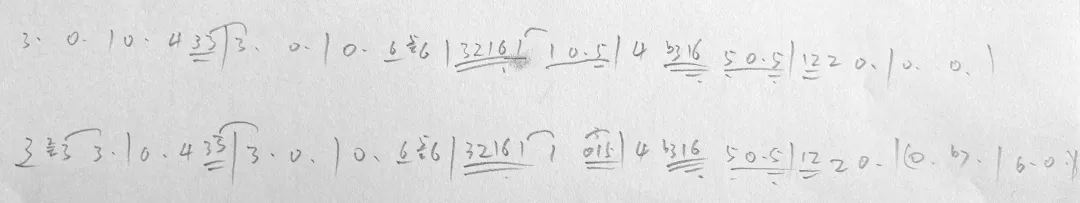 3· 0· | 0· 4 33 | 3· 0· | 0· 6 56 | 32161 1 0·5 | 4 b316 5 0·5 | 12 2 0· | 0· 0· |
3 23 3· | 0· 4 33 | 3· 0· | 0· 6 56 | 32161 1 015 | 4 b316 5 0·5 | 12 2 0· | (0· b7· | 6· 0· )